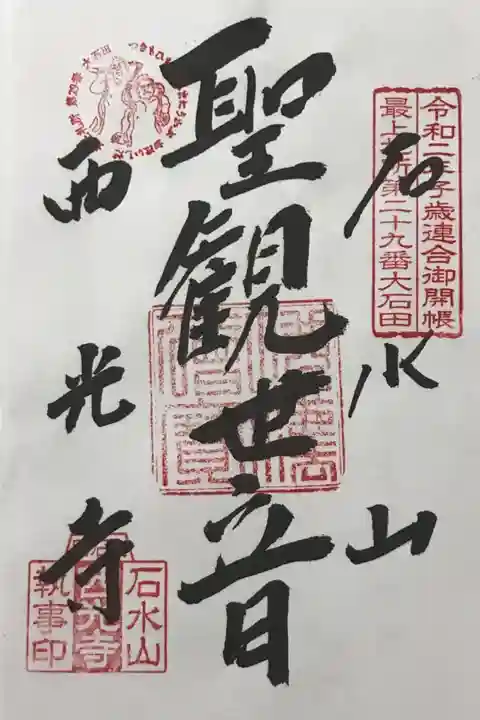 令和二年子歳連合御開帳
最上札所第二十九番大石田
石水山
聖観世音
西光寺
石水山
西光寺
執事印
大石田